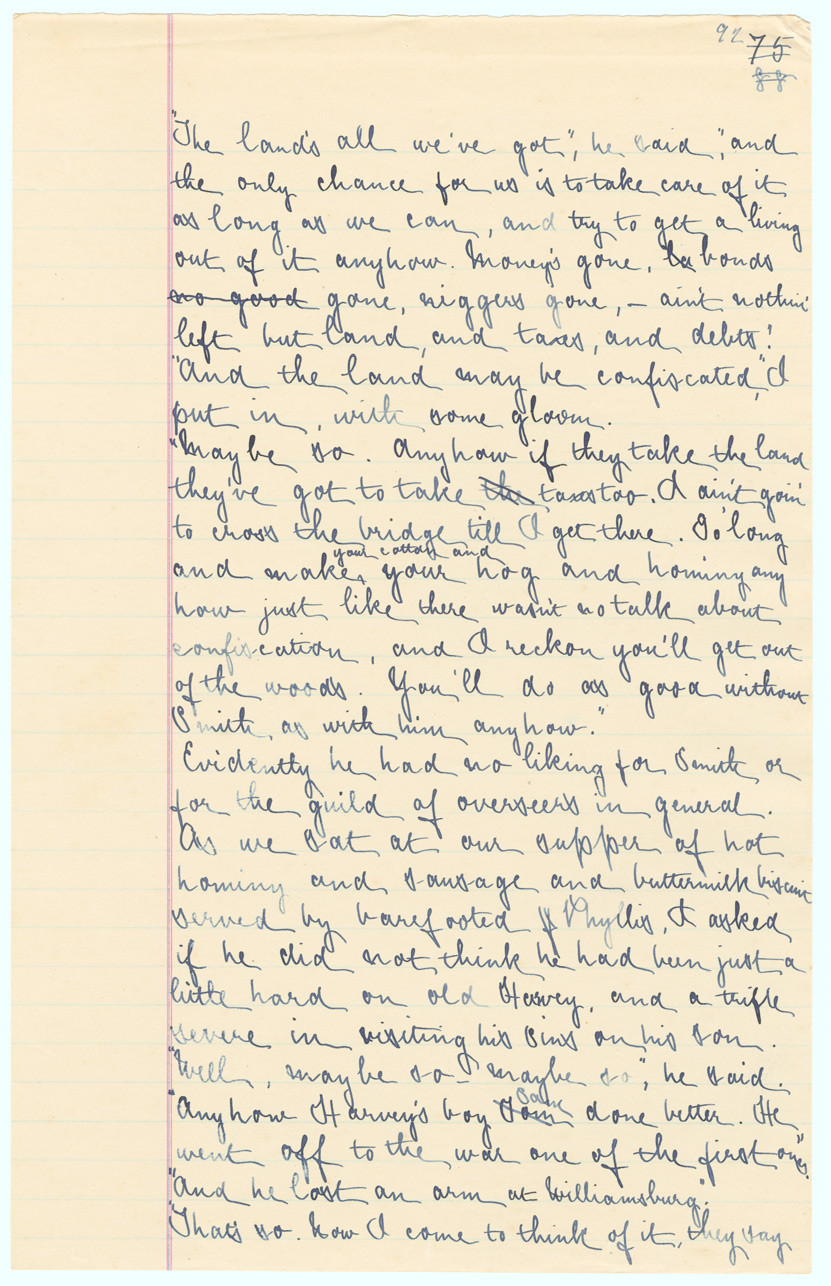 92 75
88
"The land's all we've got", he said, "and
the only chance for us is to take care of it
as long as we can, and try to get a living
out of it anyhow. Money's gone, bonds
no good gone, niggers gone, – ain't nothin'
left but land, and taxes, and debts!
"And the land may be confiscated," I
put in, with some gloom.
"Maybe so. Anyhow if they take the land
they've got to take the taxes too. I ain't goin'
to cross the bridge till I get there. Go 'long
your cotton and
and make your hog and hominy any
how just like there wasn't no talk about
confiscation, and I reckon you'll get out
of the woods. You'll do as good without
Smith, as with him anyhow."
Evidently he had no liking for Smith or
for the guild of overseers in general.
As we sat at our supper of hot
hominy and sausage and buttermilk biscuit
served by barefooted Phyllis, I asked
if he did not think he had been just a
little hard on old Harvey, and a trifle
severe in visiting his sins on his son.
"Well, maybe so – maybe so", he said.
Sam
"Anyhow Harvey's boy Tom done better. He
went off to the war one of the first ones."
"And he lost an arm at Williamsburg".
"That's so. Now I come to think of it, they say